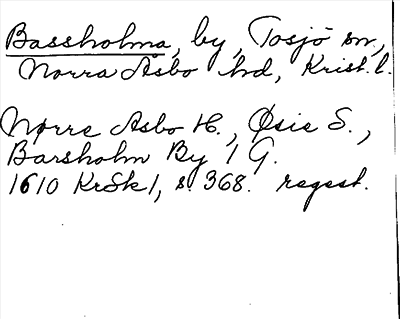 Bassholma, by, Tosjö sn,
Norra Åsbo hd, Krist. l.
Nørre Asbo H., Øsie S.,
Barsholm By 1 G.
1610 KrSk 1, s. 368. regest.